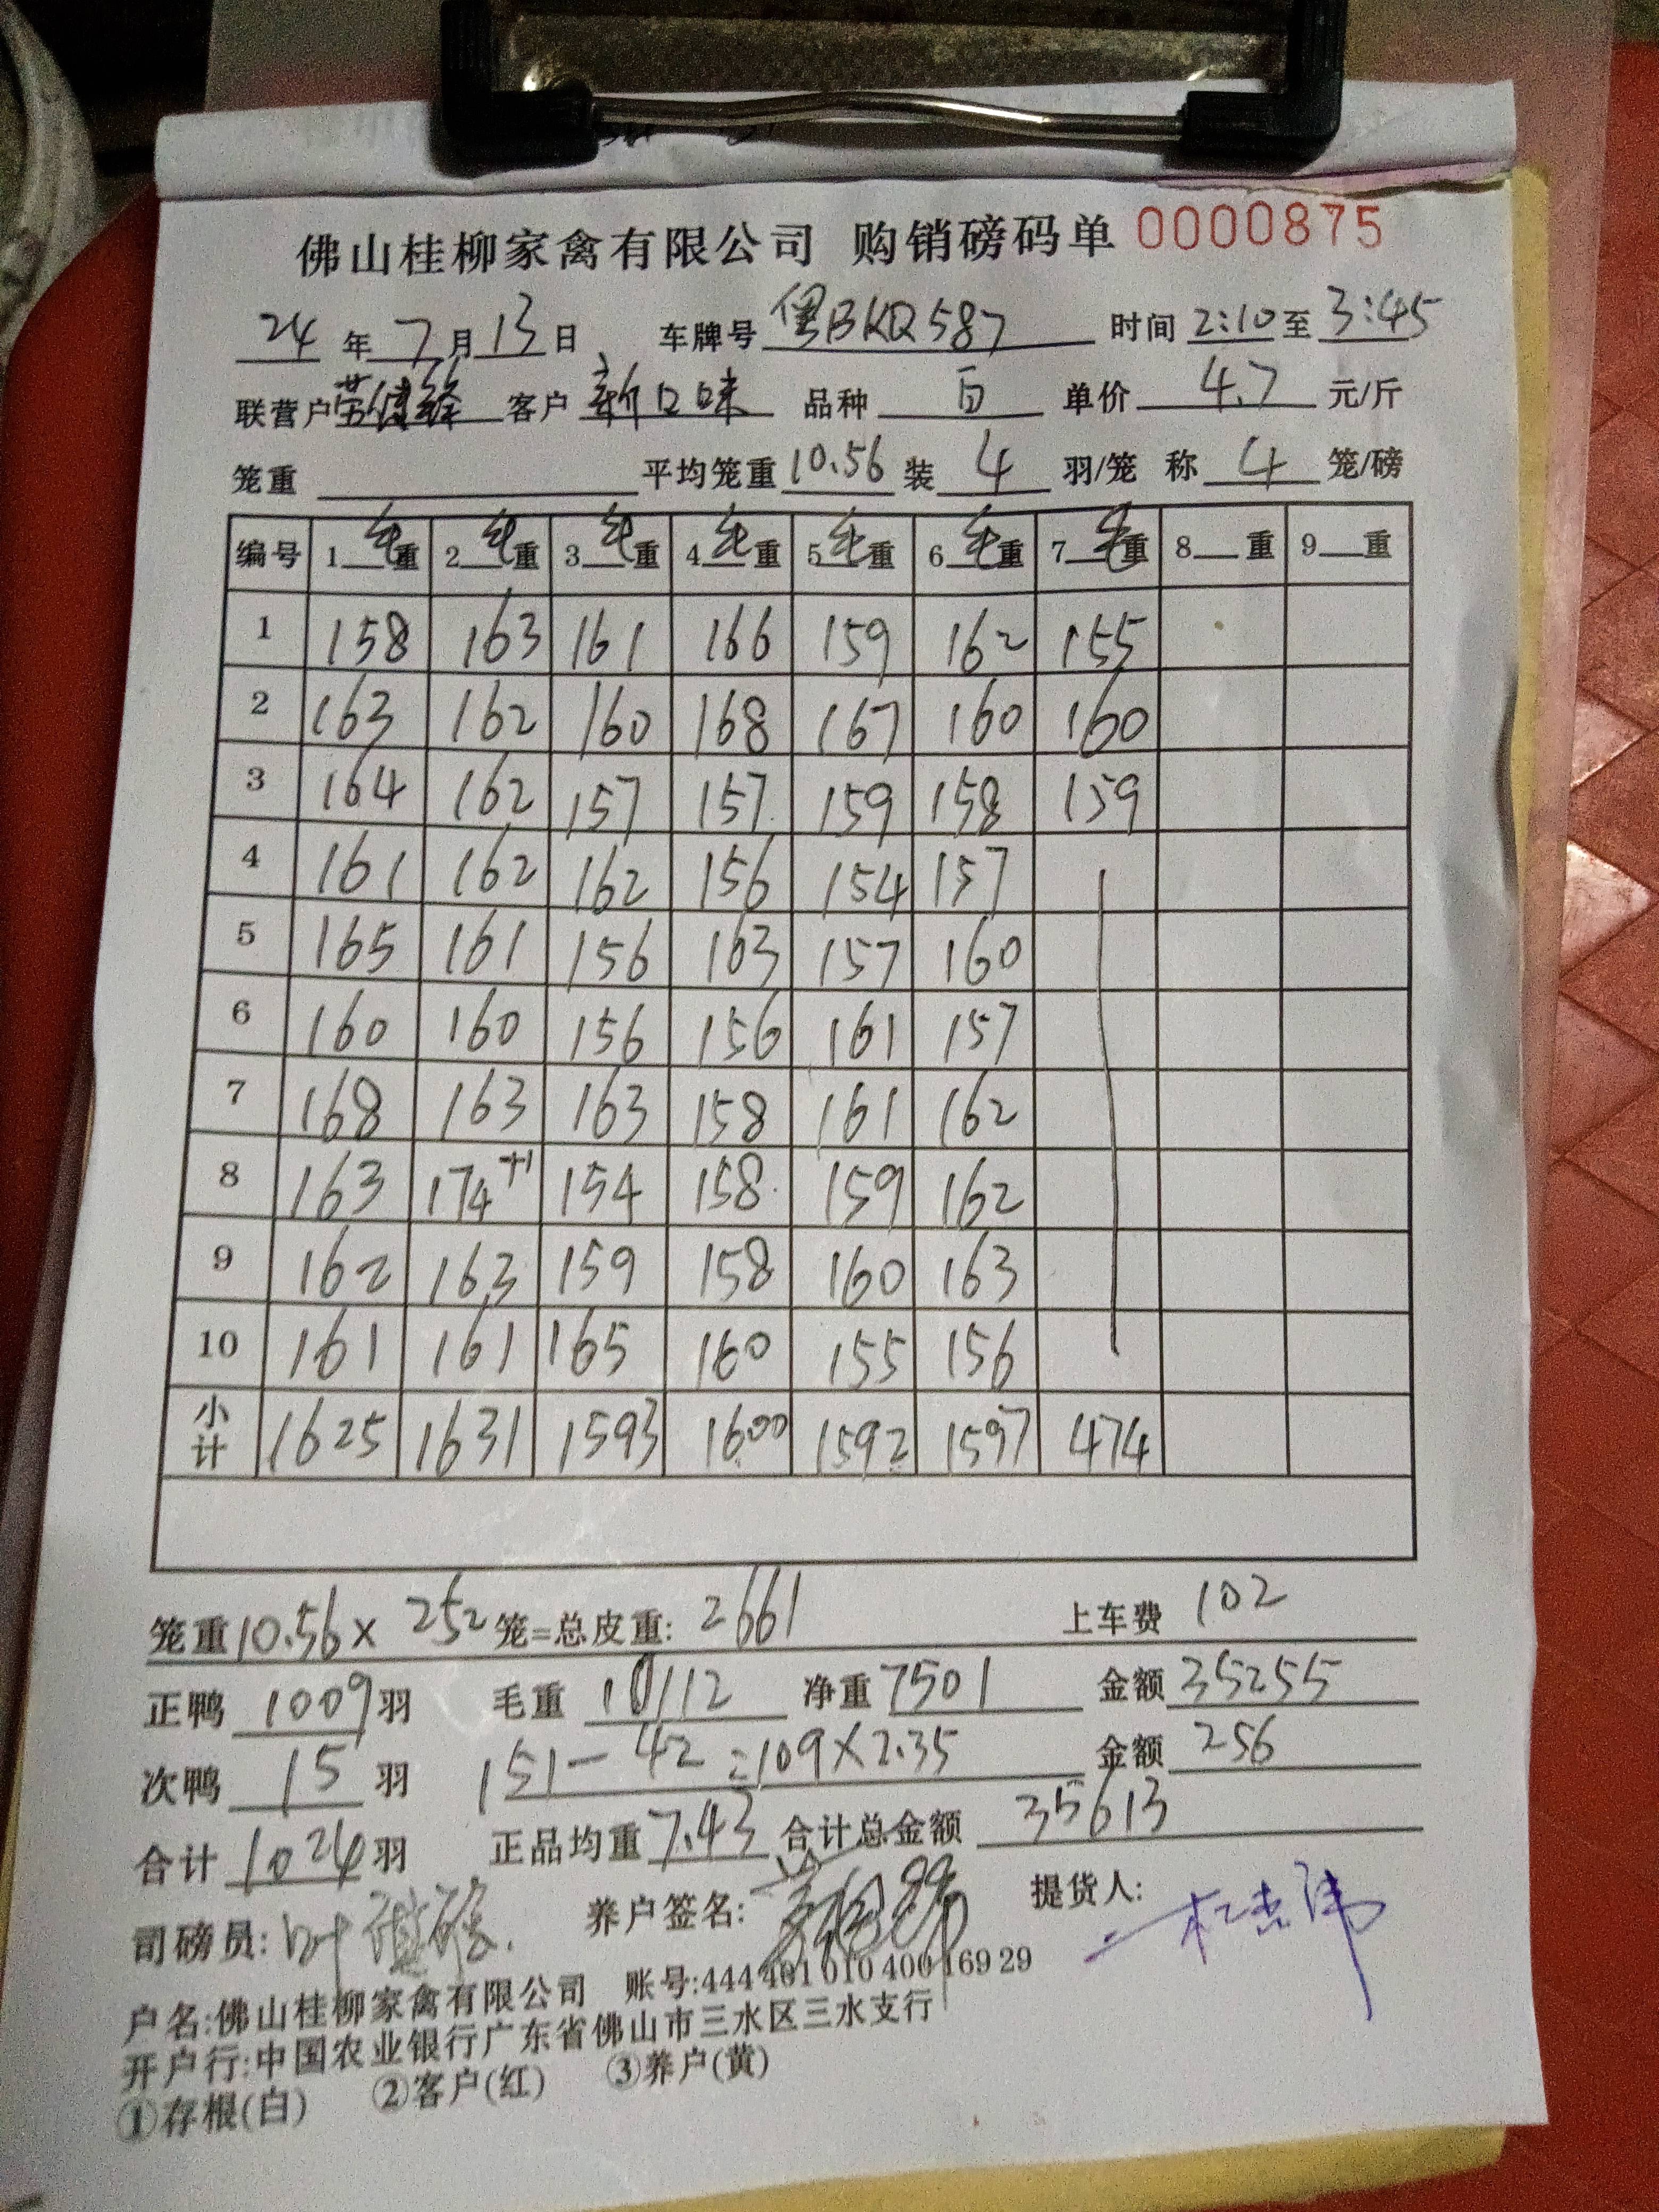 佛山桂柳家禽有限公司 购销磅码单 0000875
24 年 7 月 13 日 车牌号 粤BKQ587 时间 2:10 至 3:45
联营户 客户 新口味 品种 白 单价 4.7 元/斤
笼重 平均笼重 10.56 装 4 羽/笼 称 4 笼/磅
编号 1 毛重 2 毛重 3 毛重 4 毛重 5 毛重 6 毛重 7 毛重 8 重 9 重
1 158 163 161 166 159 162 155
2 163 162 160 168 167 160 160
3 164 162 157 157 159 158 159
4 161 162 162 156 154 157
5 165 161 156 163 157 160
6 160 160 156 156 161 157
7 168 163 163 158 161 162
8 163 174+1 154 158 159 162
9 162 163 159 158 160 163
10 161 161 165 160 155 156
小计 1625 1631 1593 1600 1592 1597 474
笼重 10.56 × 252 笼=总皮重: 2661 上车费 102
正鸭 1009 羽 毛重 10112 净重 7501 金额 35255
次鸭 15 羽 151-42=109×2.35 金额 256
合计 1024 羽 正品均重 7.43 合计总金额 35613
司磅员: 叶 养户签名: 提货人:
户名:佛山桂柳家禽有限公司 账号:444 401 010 400 169 29
开户行:中国农业银行广东省佛山市三水区三水支行
①存根(白) ②客户(红) ③养户(黄)